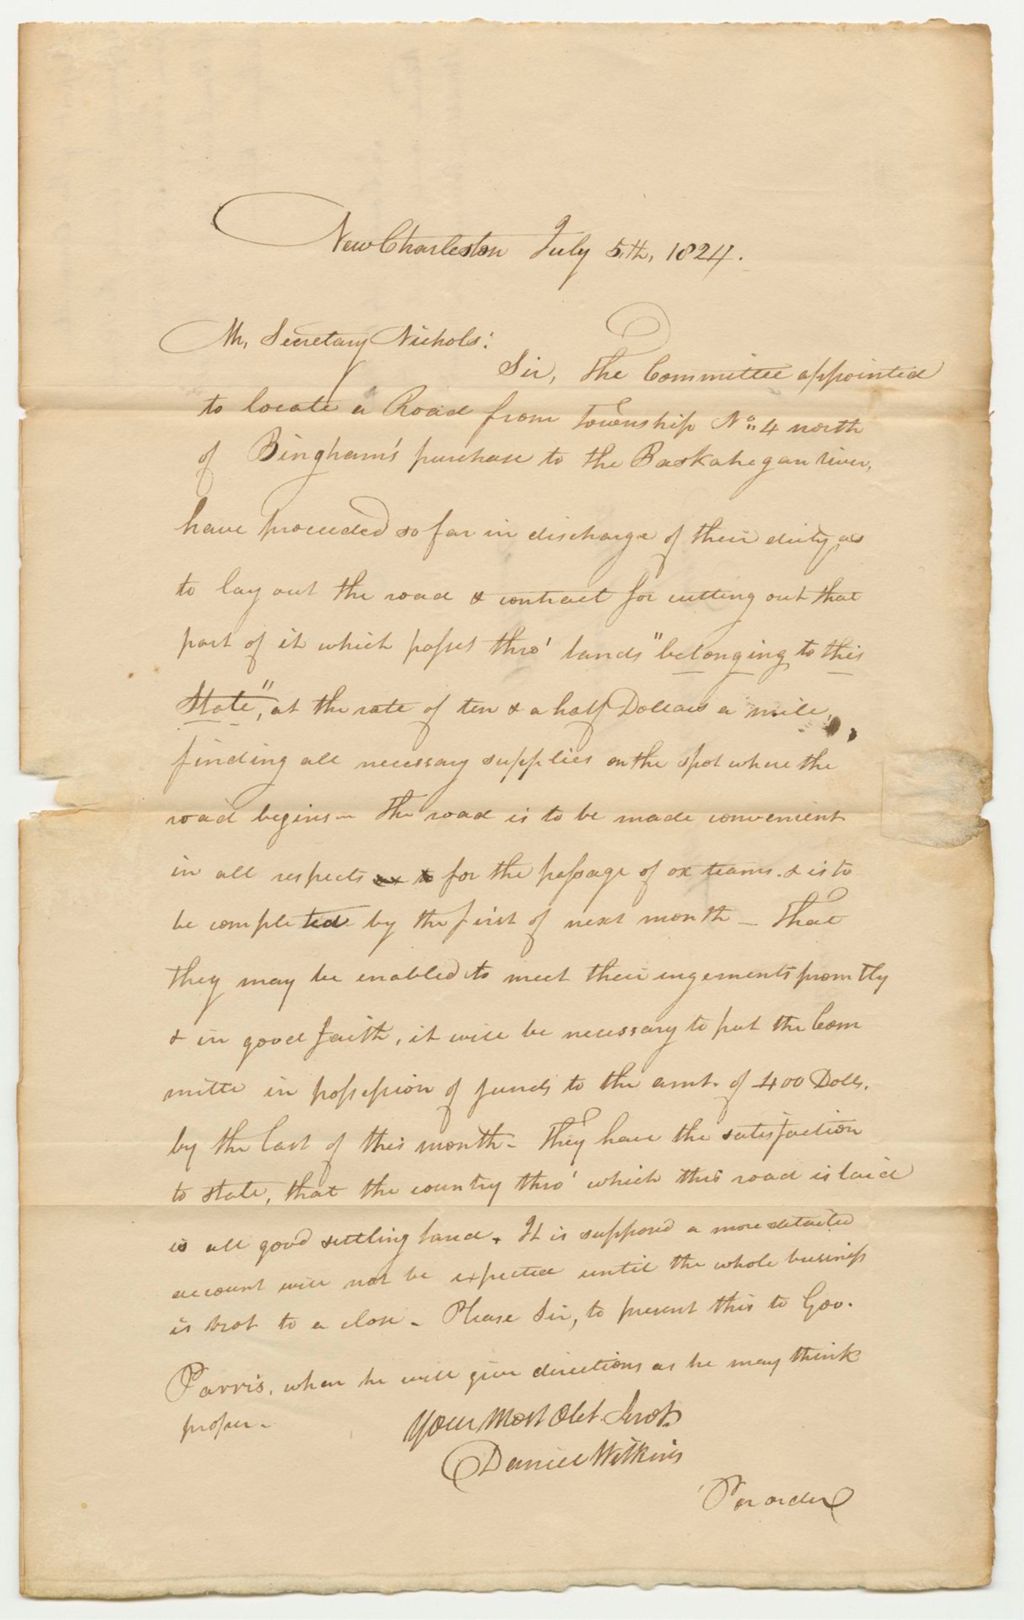 New Charleston July 5th, 1824.
Mr, Secretary Nichols:
Sir, The Committee appointed
to locate a Road from township No. 4 north
of Bingham's purchase to the Baskahegan river,
have proceeded so far in discharge of their duty as
to lay out the road & contract for cutting out that
part of it which passes thro' lands "belonging to this
State", at the rate of ten & a half Dollars a mile,
finding all necessary supplies on the spot where the
road begins - The road is to be made convenient
in all respects for the passage of ox teams. & is to
be completed by the first of next month - That
they may be enabled to meet their ingements promtly
& in good faith, it will be necessary to put the Com
mitte in possession of funds to the amt. of 400 Dolls.
by the last of this month - They have the satisfaction
to state, that the country thro' which this road is laid
is all good settling land. It is supposed a more detailed
account will not be expected until the whole business
is brot to a close - Please Sir, to present this to Gov.
Parris, when he will give directions as he may think
proper -
Your Most Obt Servt
Daniel Wilkins
Per order